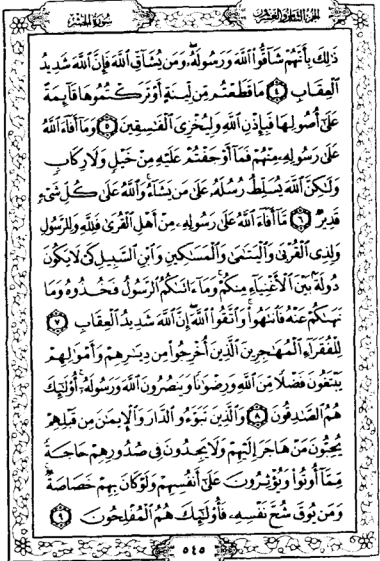 الجزء الثامن والعشرون
سورة الحشر
ذَٰلِكَ بِأَنَّهُمْ شَآقُّوا۟ ٱللَّهَ وَرَسُولَهُۥ ۖ وَمَن يُشَآقِّ ٱللَّهَ فَإِنَّ ٱللَّهَ شَدِيدُ
ٱلْعِقَابِ ٤ مَا قَطَعْتُم مِّن لِّينَةٍ أَوْ تَرَكْتُمُوهَا قَآئِمَةً
عَلَىٰٓ أُصُولِهَا فَبِإِذْنِ ٱللَّهِ وَلِيُخْزِىَ ٱلْفَـٰسِقِينَ ٥ وَمَآ أَفَآءَ ٱللَّهُ
عَلَىٰ رَسُولِهِۦ مِنْهُمْ فَمَآ أَوْجَفْتُمْ عَلَيْهِ مِنْ خَيْلٍ وَلَا رِكَابٍ
وَلَـٰكِنَّ ٱللَّهَ يُسَلِّطُ رُسُلَهُۥ عَلَىٰ مَن يَشَآءُ ۚ وَٱللَّهُ عَلَىٰ كُلِّ شَىْءٍ
قَدِيرٌ ٦ مَّآ أَفَآءَ ٱللَّهُ عَلَىٰ رَسُولِهِۦ مِنْ أَهْلِ ٱلْقُرَىٰ فَلِلَّهِ وَلِلرَّسُولِ
وَلِذِى ٱلْقُرْبَىٰ وَٱلْيَتَـٰمَىٰ وَٱلْمَسَـٰكِينِ وَٱبْنِ ٱلسَّبِيلِ كَىْ لَا يَكُونَ
دُولَةًۢ بَيْنَ ٱلْأَغْنِيَآءِ مِنكُمْ ۚ وَمَآ ءَاتَىٰكُمُ ٱلرَّسُولُ فَخُذُوهُ وَمَا
نَهَىٰكُمْ عَنْهُ فَٱنتَهُوا۟ ۚ وَٱتَّقُوا۟ ٱللَّهَ ۖ إِنَّ ٱللَّهَ شَدِيدُ ٱلْعِقَابِ ٧
لِلْفُقَرَآءِ ٱلْمُهَـٰجِرِينَ ٱلَّذِينَ أُخْرِجُوا۟ مِن دِيَـٰرِهِمْ وَأَمْوَٰلِهِمْ
يَبْتَغُونَ فَضْلًا مِّنَ ٱللَّهِ وَرِضْوَٰنًا وَيَنصُرُونَ ٱللَّهَ وَرَسُولَهُۥٓ ۚ أُو۟لَـٰٓئِكَ
هُمُ ٱلصَّـٰدِقُونَ ٨ وَٱلَّذِينَ تَبَوَّءُو ٱلدَّارَ وَٱلْإِيمَـٰنَ مِن قَبْلِهِمْ
يُحِبُّونَ مَنْ هَاجَرَ إِلَيْهِمْ وَلَا يَجِدُونَ فِى صُدُورِهِمْ حَاجَةً
مِّمَّآ أُوتُوا۟ وَيُؤْثِرُونَ عَلَىٰٓ أَنفُسِهِمْ وَلَوْ كَانَ بِهِمْ خَصَاصَةٌ ۚ
وَمَن يُوقَ شُحَّ نَفْسِهِۦ فَأُو۟لَـٰٓئِكَ هُمُ ٱلْمُفْلِحُونَ ٩
٥٤٥